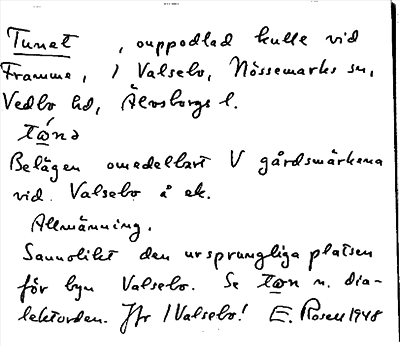 Tunet, ouppodlad kulle vid
Framme, 1 Valsebo, Nössemarks sn,
Vedbo hd, Älvsborgs l.
tɷ́nə
Belägen omedelbart V gårdsmärkena
vid Valsebo å ek.
Allmänning.
Sannolikt den ursprungliga platsen
för byn Valsebo. Se tɷn n. dia-
lektorden. Jfr 1 Valsebo! E. Rosell 1948